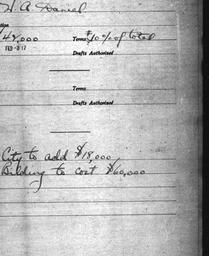 H. A. Daniel
tion
48,000 Terms $10% of total
FEB -3 17
Drafts Authorized
Terms
Drafts Authorized
City to add $18,000
Bilding to cost $60,000